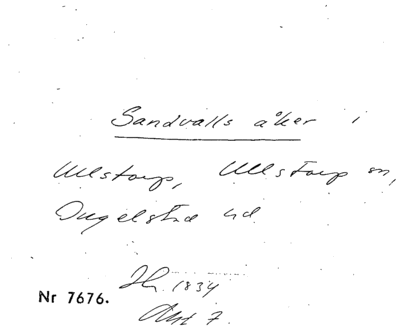 Sandvalls åker i
Ullstorp, Ullstorp sn,
Ingelstad hd
1834
Nr 7676.
7.